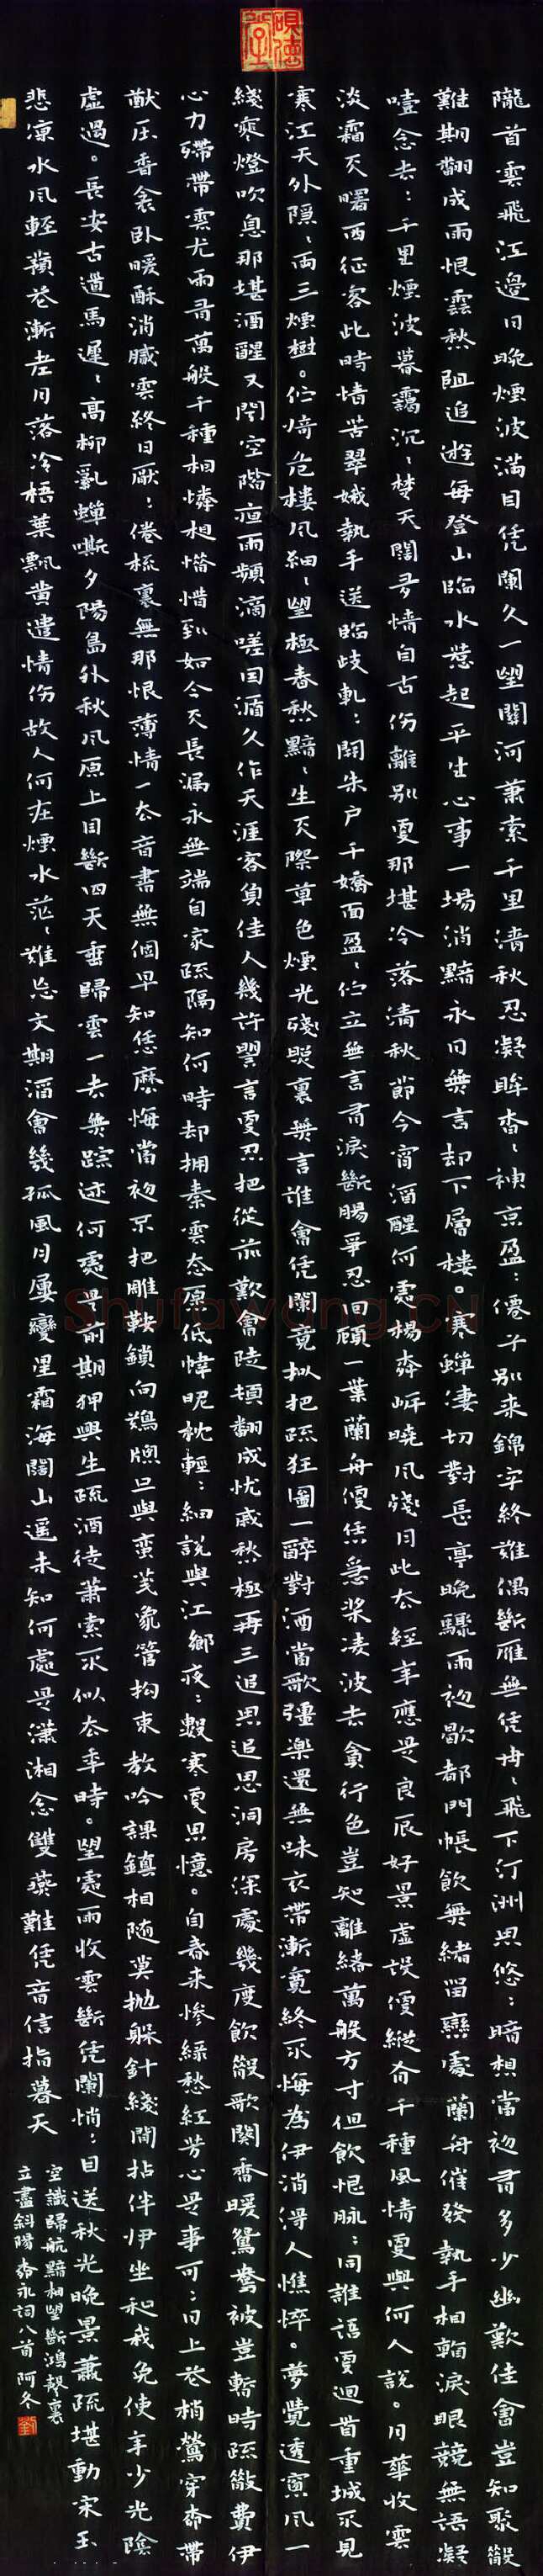 隴首雲飛江邊日晚煙波滿目凭闌久一望關河蕭索千里清秋忍凝眸杳〻神京盈〻僊子別来錦字終難偶斷雁無凭冉〻飛下汀洲思悠〻暗想當初有多少幽歡佳會豈知聚散
難期翻成雨恨雲愁阻追遊每登山臨水惹起平生心事一場消黯永日無言却下層樓。寒蟬淒切對長亭晚驟雨初歇都門帳飲無緒留戀處蘭舟催發執手相看淚眼競無語凝
噎念去〻千里煙波暮靄沉〻楚天闊多情自古伤離別更那堪冷落清秋節今宵酒醒何處楊柳岸曉風殘月此去經年應是良辰好景虛設便縱有千種風情更與何人說。月華收雲
淡霜天曙西征客此時情苦翠娥執手送臨歧軋〻開朱户千嬌面盈〻佇立無言有淚斷腸爭忍回顧一葉蘭舟便恁急桨凌波去貪行色豈知離緒萬般方寸但飲恨脉〻同誰語更迴首重城不見
寒江天外隱〻兩三煙樹。佇倚危樓風細〻望極春愁黯〻生天際草色煙光殘照裏無言誰會凭闌意拟把疏狂圖一醉對酒當歌彊樂還無味衣帶漸寬終不悔為伊消得人憔悴。夢覺透窗風一
綫寒燈吹息那堪酒醒又聞空階夜雨頻滴嗟因循久作天涯客負佳人幾許盟言更忍把從前歡會陡頓翻成忧戚愁極再三追思追思洞房深處幾度飲散歌闋香暖鴛鴦被豈暫時疏散費伊
心力殢雲尤雨有萬般千種相憐相惜到如今天長漏永無端自家疏隔知何時却拥秦雲态原低幃昵枕輕〻細說與江鄉夜〻數寒更思憶。自春来惨綠愁紅芳心是事可〻日上花梢鶯穿柳帶
猷压香衾卧暖酥消膩雲終日厭〻倦梳裹無那恨薄情一去音書無個早知恁麽悔當初不把雕鞍鎖向鷄窗只與蛮箋象管拘束教吟課鎮相随莫抛躲針綫閒拈伴伊坐和我免使年少光陰
虚過。長安古道馬遲〻高柳亂蟬嘶夕陽島外秋風原上目斷四天垂歸雲一去無踪迹何處是前期狎興生疏酒徒蕭索不似去年時。望處雨收雲斷凭闌悄〻目送秋光晚景蕭疏堪動宋玉
悲凉水風輕蘋花漸老月落冷梧葉飄黄遣情伤故人何在煙水茫〻難忘文期酒會幾孤風月屢變星霜海闊山遥未知何處是瀟湘念雙燕難凭音信指暮天
空識歸航黯相望斷鴻聲裏
立盡斜陽 柳永詞八首 阿冬
Shufawang.CN